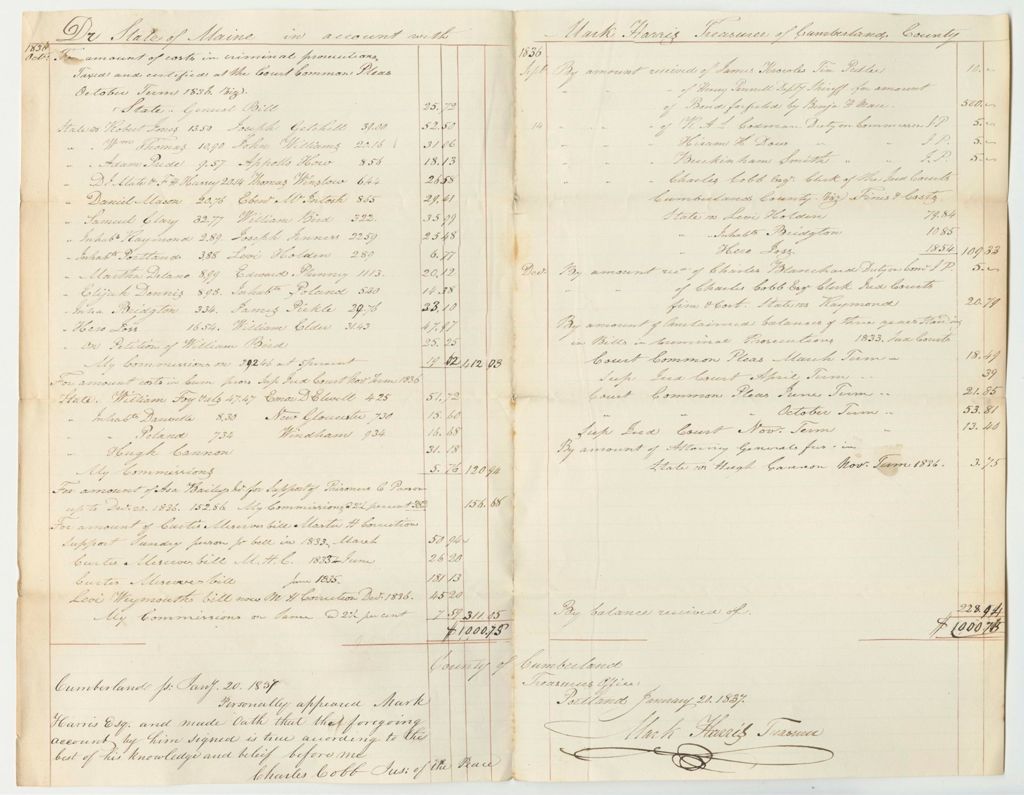 Dr State of Maine in account with
1836
Octr For amount of costs in criminal prosecutions,
Taxed and certified at the Court Common Pleas
October Term 1836. Viz.
State General Bill 25.72
State vs Robert Jones 13.50 Joseph Getchell 39.00 52.50
" Wm Thomas 10.90 John Williams 20.16 31.06
" Adam Pride 9.57 Apollos How 8.56 18.13
" Thomas Winslow 6.44 26.58
" Daniel Mason 20.76 Ebenr McIntosh 8.65 29.41
" Samuel Clary 32.77 William Bird 3.22 35.99
" Inhabts Raymond 2.89 Joseph 22.59 25.48
" Inhabts Portland 3.88 Levi Holden 2.89 6.77
" Martha Delano 8.99 Edward Plumny 11.13 20.12
" Elijah Dennis 8.98 Inhabts Poland 5.30 14.28
" Inha Bridgton 3.34 James Pickle 29.76 33.10
" Hero 16.54 William Elder 31.43 47.97
" on Petition of William Bird 25.25
My Commissions on 392.46 at 5 percent 19.62 412.03
For amount costs in Cum. Supr Jud Court Novr Term 1836
State. William Foy & als 47.47 Emor D Elwell 4.25 51.72
" Inhabts Danville 8.30 New Gloucester 7.30 15.60
" " Poland 7.34 Windham 9.34 16.68
" Hugh Cannon 31.18
My Commissions 5.76 120.94
For amount of Asa Bailey for Support of Prisoners
up to Decr 1836. 152.86 My Commissions @ 2½ percent 156.68
For amount of Curtis Meserve bill Master H Correction
Support Sunday person pr bill in 1833, March 50.94
Curtis Meserve bill M.H.C. June 26.20
Curtis Meserve bill June 1835. 181.13
Levi Weymouth bill now M. H Correction Decr 1836. 45.20
My Commissions on Same @ 2½ percent 7.59 311.05
$1000.75
Mark Harris Treasurer of Cumberland County
1836
Sept By amount received of James Knowles Tin Pedler 10.
" of Henry Pennell Depty Sheriff for amount
of Bond forfeited by Benja 500.
14 " of R. A. L. Codman Duty on Commission J P 5.
" Hiram H. Dow " J. P. 5.
" Buckinham Smith " " J. P. 5.
" Charles Cobb Esqr Clerk of the Jud Courts
Cumberland County Viz Fines & Costs,
State vs Levi Holden 79.84
" Inhabts Bridgton 10.85
" Hero 18.54 109.33
Decr By amount recd of Charles Blanchard Duty on Comn J P 5.
" of Charles Cobb Esqr Clerk Jud Courts
fine & Cost. State vs Raymond 20.79
By amount of Unclaimed balances of three years standing
in Bills in Criminal Prosecutions 1833. Jud Courts
Court Common Pleas March Term 18.49
Sup Jud Court April Term " 39
Court Common Pleas June Term " 21.85
" " October Term " 53.81
Sup Jud Court Novr Term " 13.40
By amount of Attorney Generals fees in
State vs Hugh Cannon Novr Term 1836. 3.75
By balance received of 228.94
$1000.75
County of Cumberland
Treasurers Office
Portland January 21. 1837.
Mark Harris Treasurer
Cumberland ss. Jany. 20. 1837
Personally appeared Mark
Harris Esq. and made Oath that the foregoing
account by him signed is true according to the
best of his knowledge and belief before me
Charles Cobb Jus: of the Peace